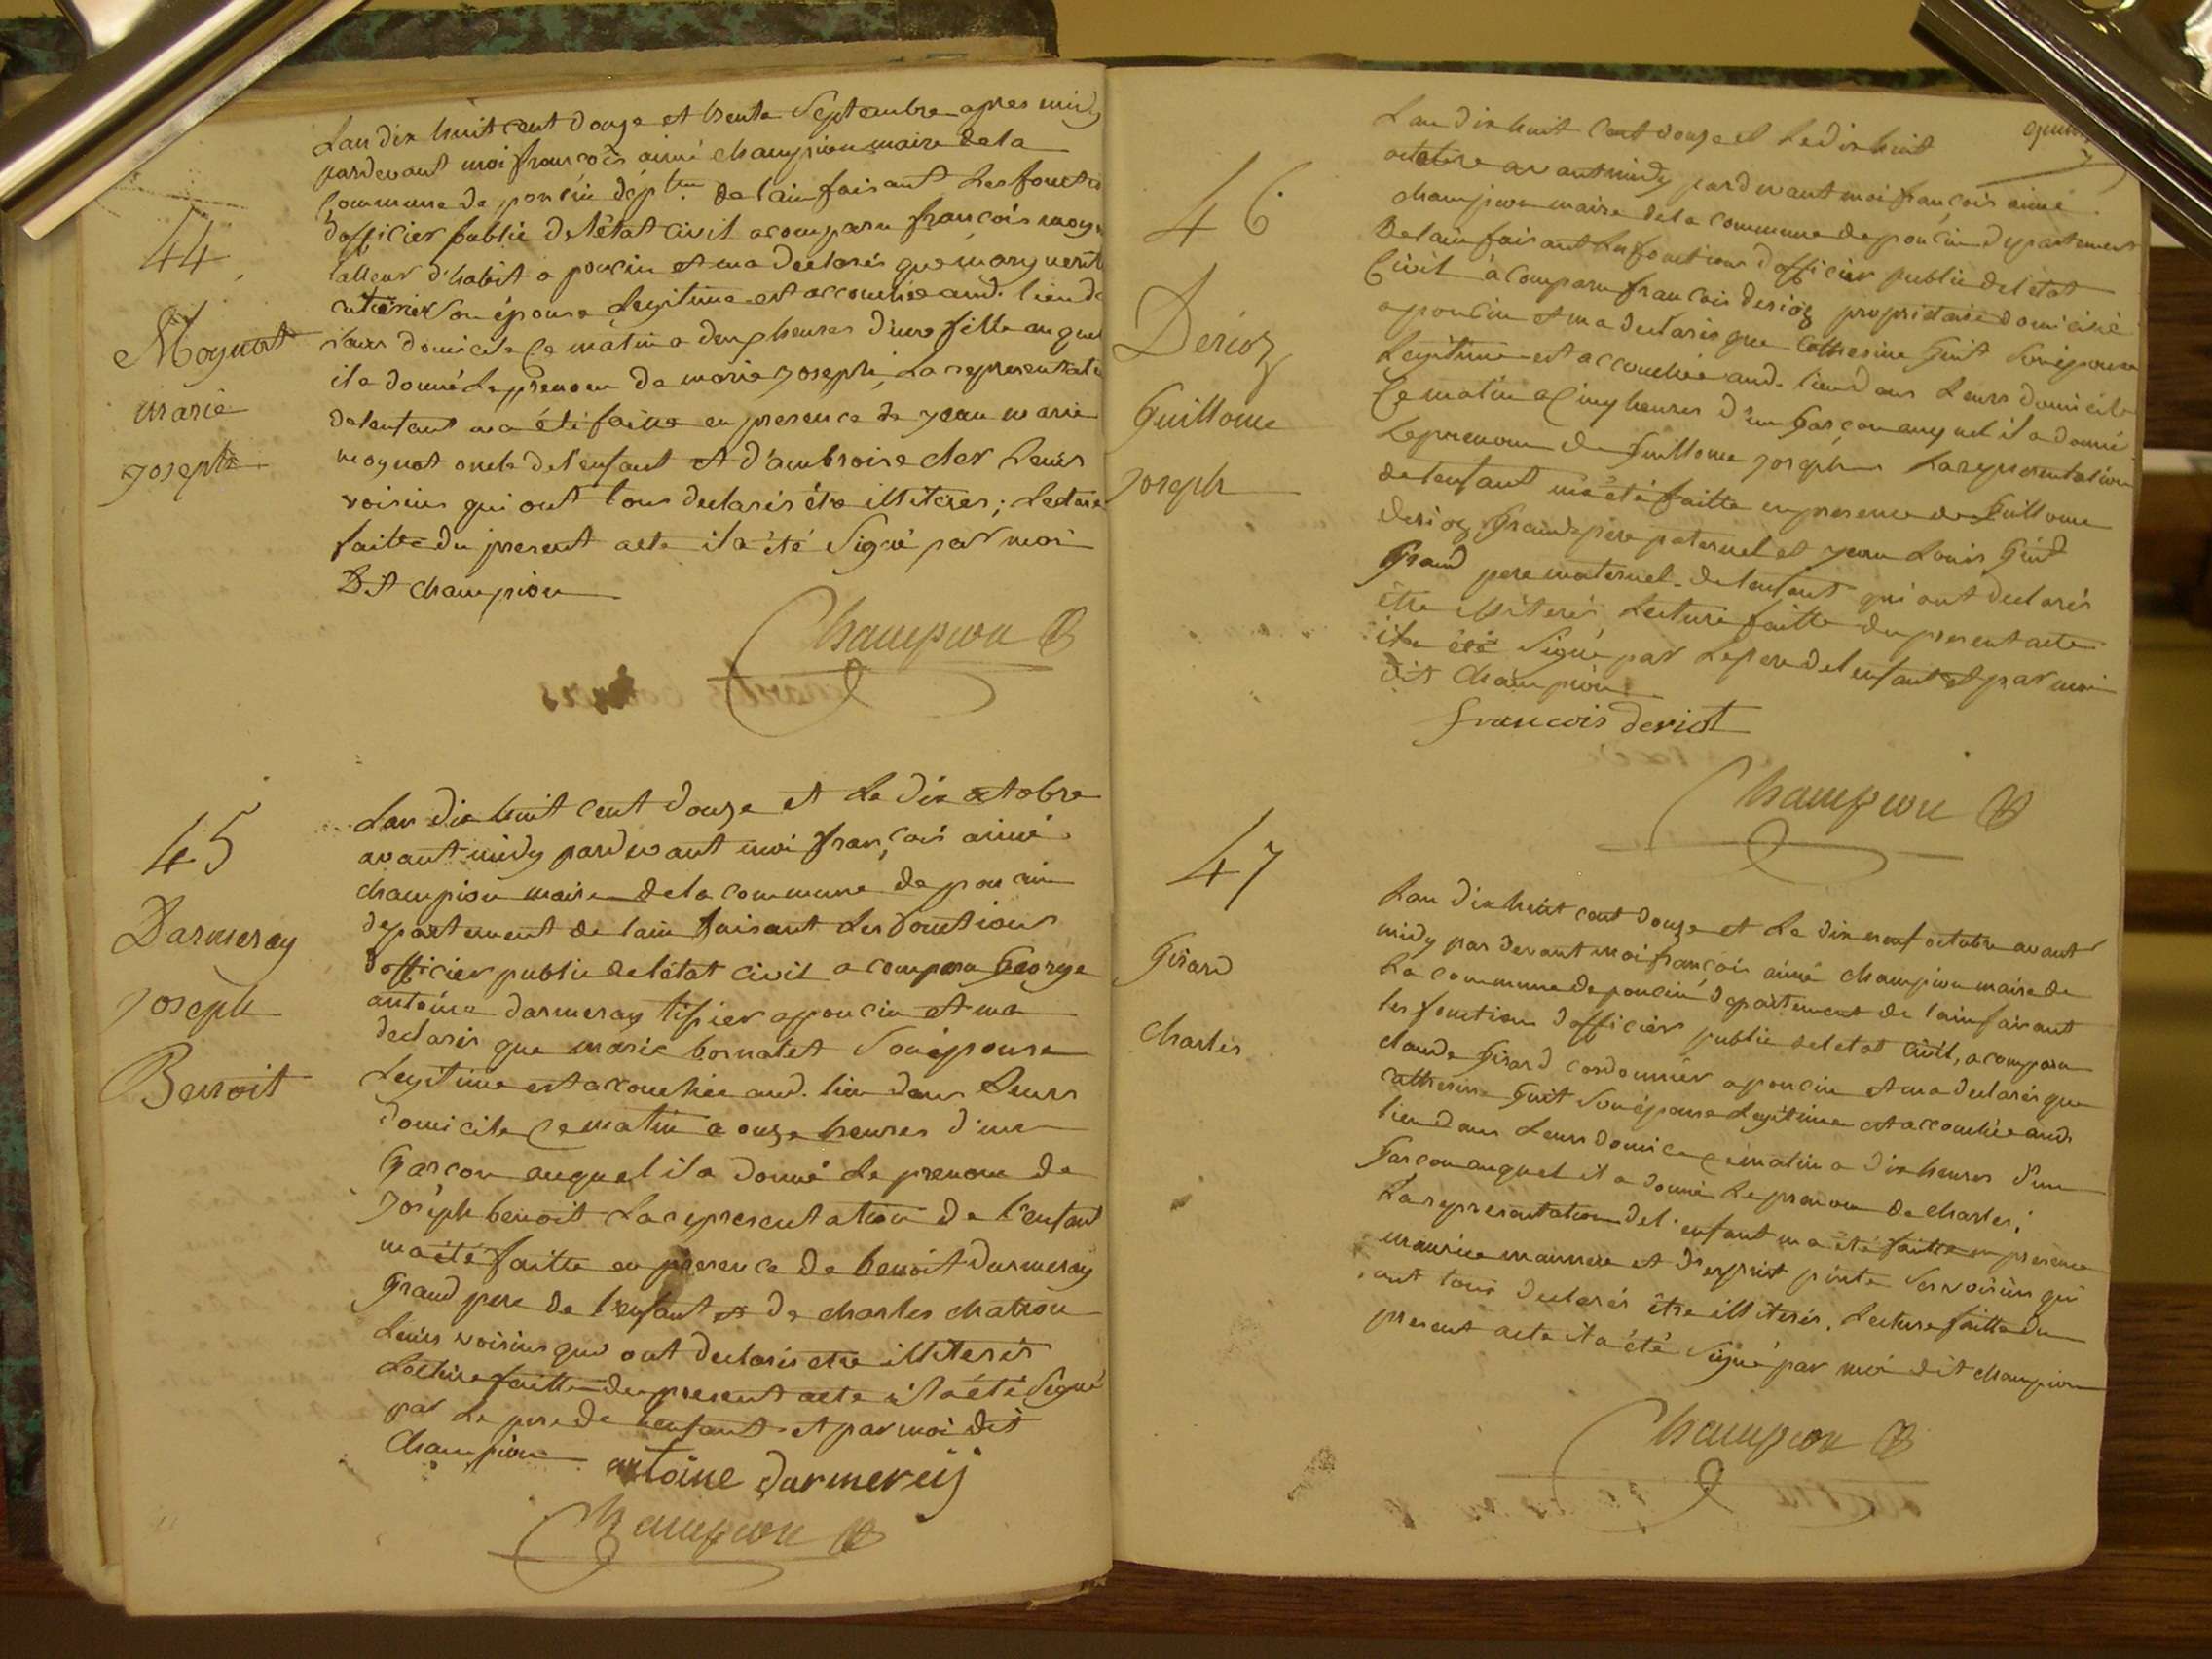 44
Moynat
marie
joseph
Lan dix huit cent douze et trente Septembre apres midy
pardevant moi françois aimé champion maire dela
Commune de poncin dép.tem de lain faisant les fonctio
dofficier public deletat civil acomparu francois moyn
talleur d'habit a poncin et ma declarés que marguerit
Son épouse Legitime est accouchée aud. lieu d
Leurs domicile Ce matin a deux heures d'une fille auquel
il a donné Le prenom de marie joseph, La representati
delenfant ma été faitte en presence de jean marie
moynat oncle del'enfant et d'ambroise cler Leurs
voisins qui ont tous declarés être illiterés; Lecture
faitte du present acte il a été Signé par moi
Dit champion
Champion
45
Darmeray
joseph
Benoit
Lan dix huit cent douze et Le dix octobre
avant midy pardevant moi françois aimé
champion maire dela commune de poncin
departement de lain faisant Les fonctions
dofficier public deletat civil a comparu George
antoine darmeray tissier a poncin et ma
declarés que marie bornatet Son épouse
Legitime est acouchée aud. lieu dans Leurs
domicile Ce matin a onze heures d'un
Garcon auquel il a donné Le prenom de
joseph benoit La representation de l'enfant
ma été faitte en presence de benoit darmeray
Grand pere de l'enfant et de charles chatron
Leurs voisins qui ont declarés etre illiterés
Lecture faitte du present acte il a été Signé
par Le pere de lenfant et par moi dit
Champion
antoine darmerey
Champion
46
Derioz
Guillome
joseph
Lan dix huit Cent douze et Le dix huit
octobre avant midy pardevant moi françois aimé
champion maire dela commune de poncin departement
De lain faisant Les fonctions dofficier public del état
Civil à comparu francois derioz propriétaire domicilié
a poncin et ma declarés que Catherine Guit Son épouse
Legitime est accouchée aud. lieu dans Leurs domicile
Ce matin a Cinq heures d'un Garçon auquel il a donné
Le prenom de Guillome joseph La representation
de lenfant ma été faitte en presence de Guillome
derioz Grand pere paternel et jean Louis Guit
Grand pere maternel de lenfant qui ont declarés
être illiterés Lecture faitte du present acte
il a été Signé par Le pere del enfant et par moi
dit Champion
francois deriot
Champion
47
Girard
charles
Lan dix huit cent douze et Le dix neuf octobre avant
midy par devant moi françois aimé champion maire de
La commune de poncin departement de lain faisant
les fonctions dofficier public deletat civil, a comparu
claude Girard cordonnier a poncin et ma declarés que
Catherine Guit Son épouse Legitime est accouchée aud.
lieu dans Leurs domicile ce matin a dix heures d'un
Garcon auquel il a donné Le prenom de charles;
La representation del'enfant ma été faitte en presence
maurice et d'esprit pinte Ses voisins qui
ont tous declarés être illiterés. Lecture faitte du
present acte il a été Signé par moi dit champion
Champion